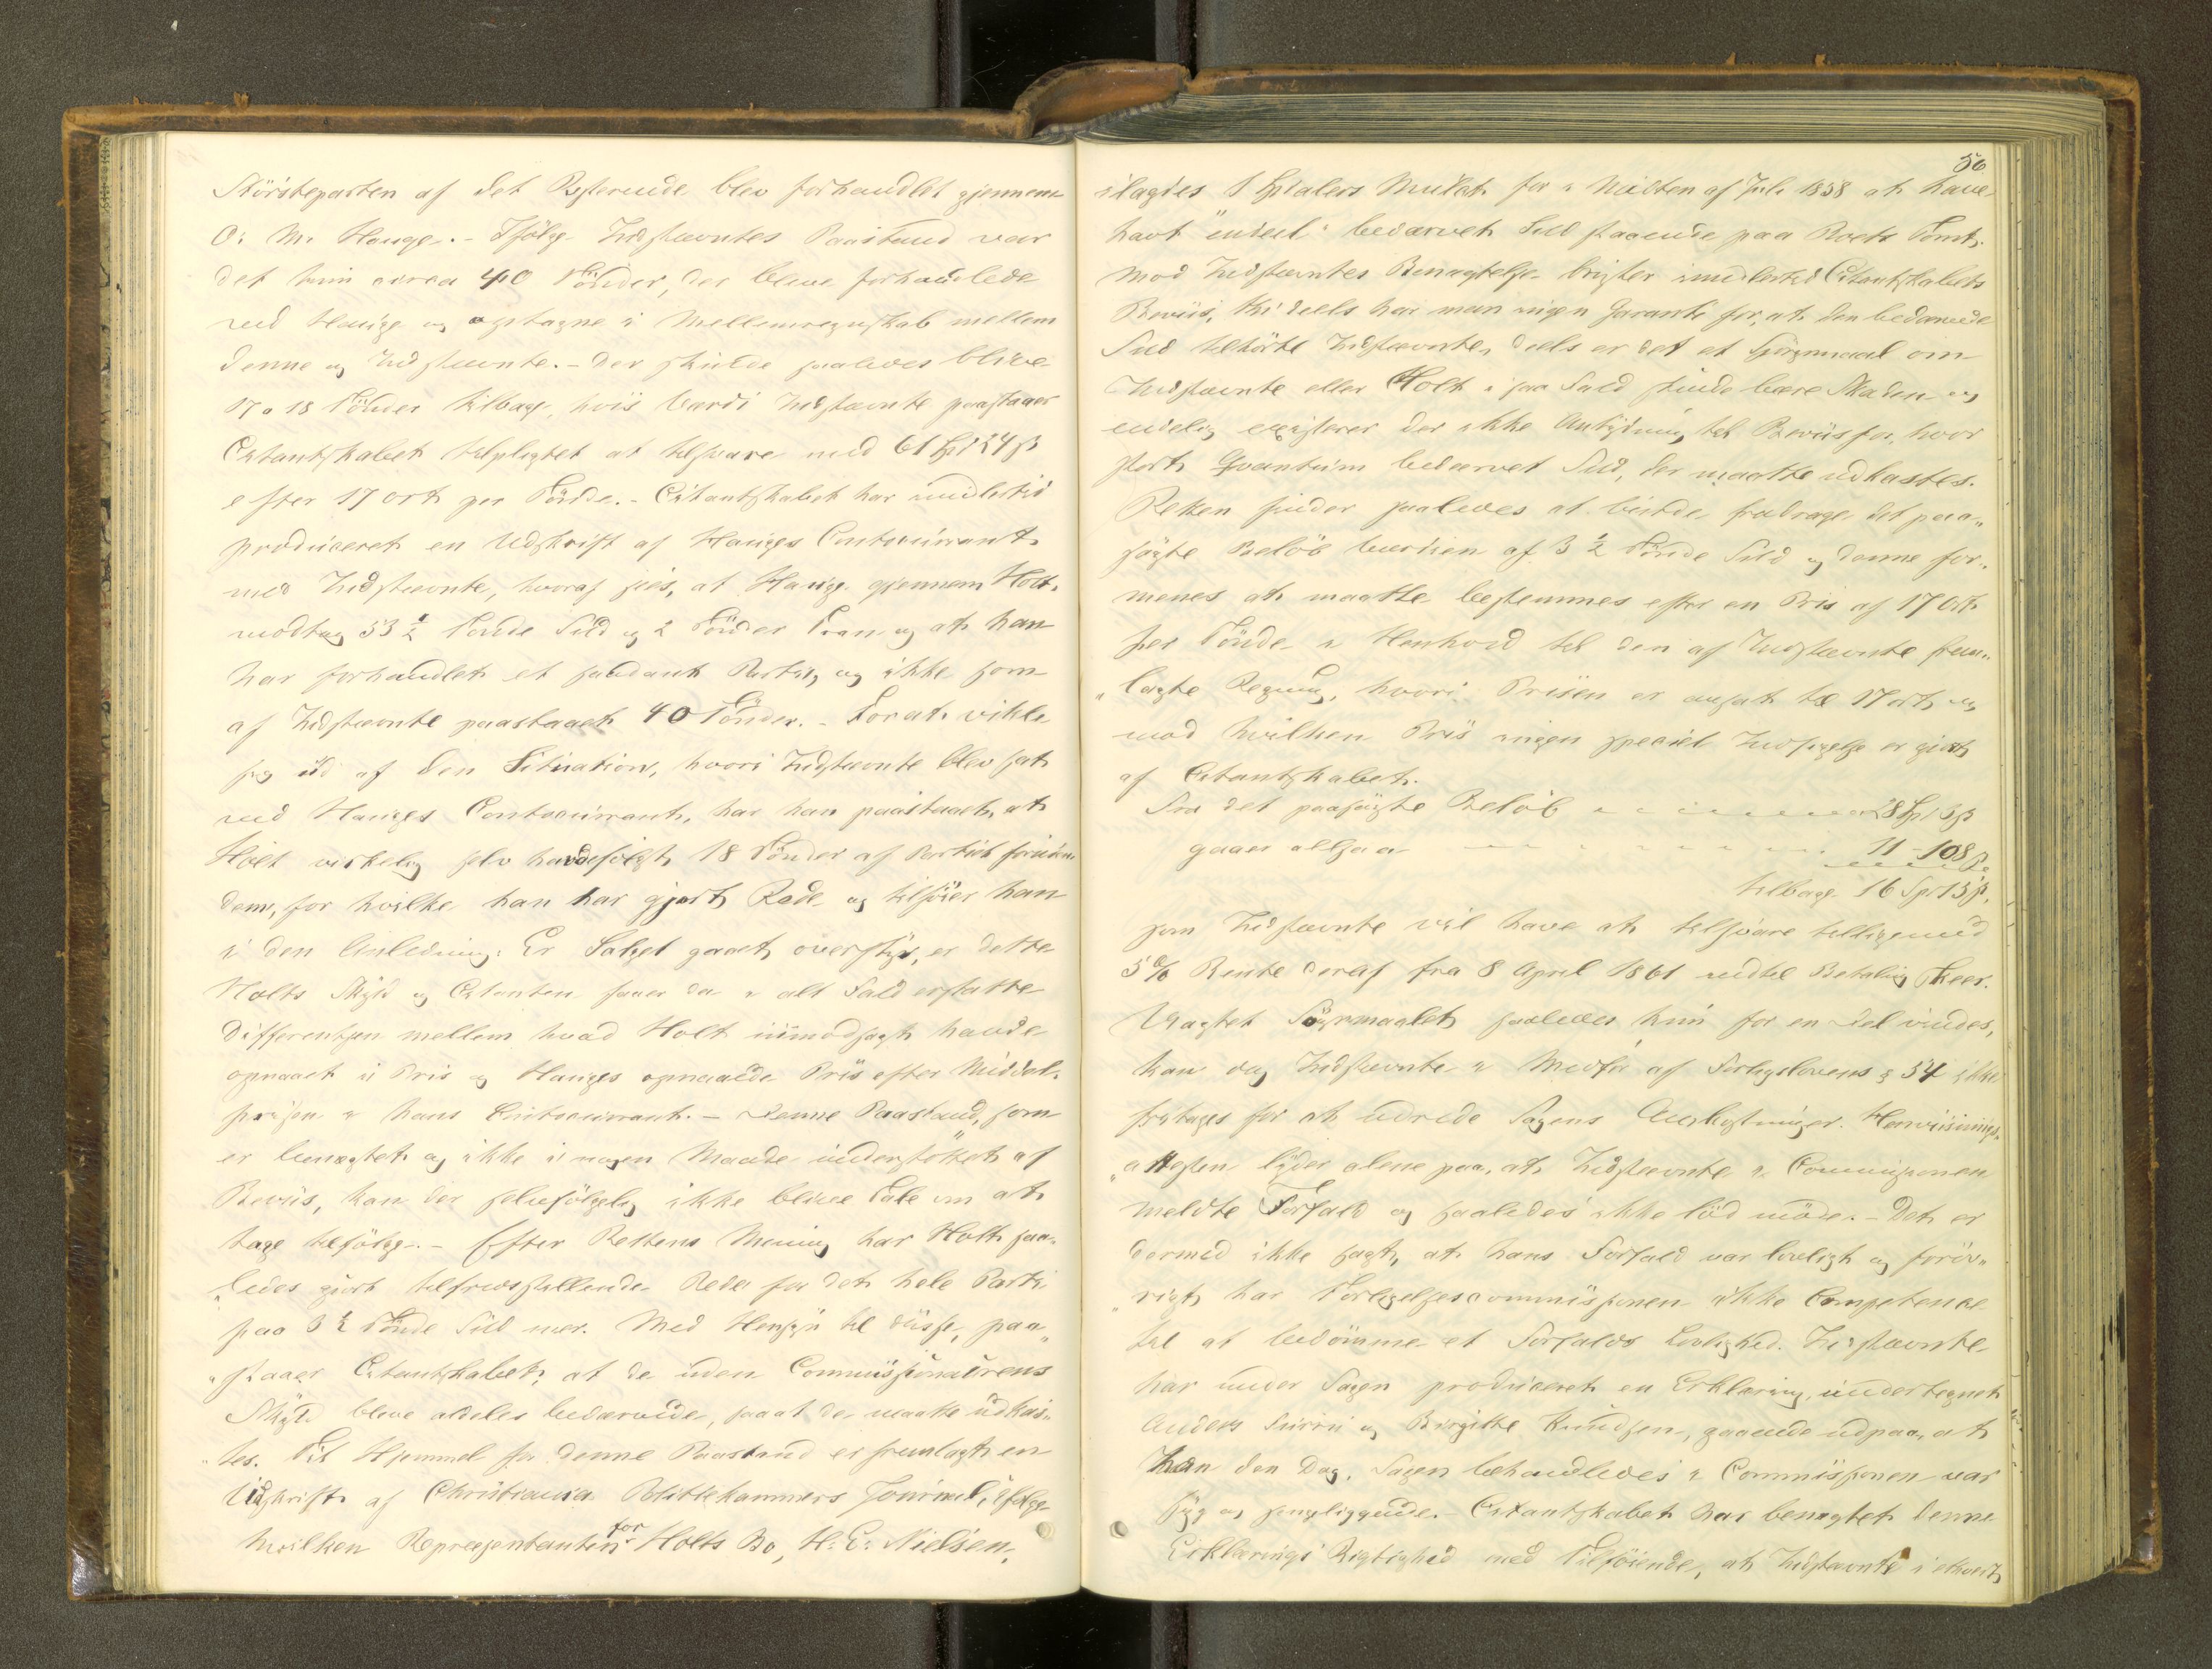 Störsteparten af det Resterende blev forhandlet gjennem
O. M. Hauge. - Ifölge Indstævntes Paastand var
det kun circa 40 Tönder, der bleve forhandlede
ved Hauge og optagne i Mellemregnskab mellem
denne og Indstævnte. - Der skulde saaledes blive
17 a 18 Tönder tilbage, hvis Værdi Indstævnte paastaaer
Citantskabet tilpligtet at tilsvare med 61 Spd 24 ß
efter 17 ort per Tönde. - Citantskabet har imidlertid
produceret en Udskrift af Hauges Contocourant
med Indstævnte, hvoraf sees, at Hauge gjennem Holt
modtog 53 ½ Tönde Sild og 2 Tönder Tran og at han
har forhandlet et saadant Parti, og ikke som
af Indstævnte paastaaet 40 Tönder. - For at vikle
sig ud af den Situation, hvori Indstævnte blev sat
ved Hauges Contocourant, har han paastaaet, at
Holt virkelig selv havde solgt 18 Tönder af Partiet forinden
dem, for hvilke han har gjort Rede og tilföier han
i den Anledning: Er Salget gaaet overstyr, er dette
Holts Skyld og Citanten faaer da i alt Fald erstatte
Differentsen mellem hvad Holt uimodsagt havde
opnaaet i Pris og Hauges opnaaede Pris efter Middel-
prisen i hans Contocourant. - Denne Paastand, som
er benægtet og ikke i nogen Maade understöttet af
Beviis, kan der selvfölgelig ikke blive Tale om at
tage tilfölge. - Efter Rettens Mening har Holt saa-
"ledes gjort tilfredsstillende Rede for det hele Parti
paa 3 ½ Tönde Sild nær. Med Hensyn til disse, paa-
"staaer Citantskabet, at de uden Commissionairens
Skyld bleve aldeles bedærvede, saa at de maatte udkas-
"tes. Til Hjemmel for denne Paastand er fremlagt en
Udskrift af Christiania Politikammers Journal, ifölge
hvilken Repræsentanten for Holts Bo, H. C. Nielsen,
56
ilagdes 1 Spdalers Mulct for i Midten af Juli 1858 at have
havt "endeel" bedærvet Sild staaende paa Roets Tomt.
Mod Indstævntes Benægtelse brister imidlertid Citantskabets
Beviis, thi deels har man ingen Garanti for, at den bedærvede
Sild tilhörte Indstævnte, deels er det et Spörgsmaal om
Indstævnte eller Holt i saa Fald skulde bære Skaden og
endelig existerer der ikke Antydning til Beviis for, hvor
stort Qvantum bedærvet Sild, der maatte udkastes.
Retten finder saaledes at burde fradrage det paa-
sögte Belöb Værdien af 3 ½ Tönde Sild og denne for-
menes at maatte bestemmes efter en Pris af 17 Ort
per Tönde i Henhold til den af Indstævnte frem-
"lagte Regning, hvori Prisen er ansat til 17 ort og
mod hvilken Pris ingen speciel Indsigelse er gjort
af Citantskabet.
Fra det paasögte Belöb 28 Spd 3 ß
gaaer altsaa 11 - 108 ß.
tilbage 16 Spd 15 ß.
som Indstævnte vil have at tilsvare tilligemed
5 % Rente deraf fra 8 April 1861 indtil Betaling skeer.
Uagtet Sögsmaalet saaledes kun for en Del vindes,
kan dog Indstævnte i Medför af Forligslovens § 54 ikke
fritages for at udrede Sagens Omkostninger. Henviisnings-
"attesten lyder alene paa, at Indstævnte i Commissionen
meldte Forfald og saaledes ikke lod möde. - Det er
dermed ikke sagt, at hans Forfald var lovligt og foröv-
"rigt har Forligelsescommissionen ikke Competence
til at bedömme et Forfalds Lovlighed. Indstævnte
har under Sagen produceret en Erklæring, undertegnet
Anders  og Birgitte Knudsen, gaaende ud paa, at
han den Dag, Sagen behandledes i Commissionen var
syg og sengeliggende. - Citantskabet har benægtet denne
Erklærings Rigtighed med Tilföiende, at Indstævnte i ethvert